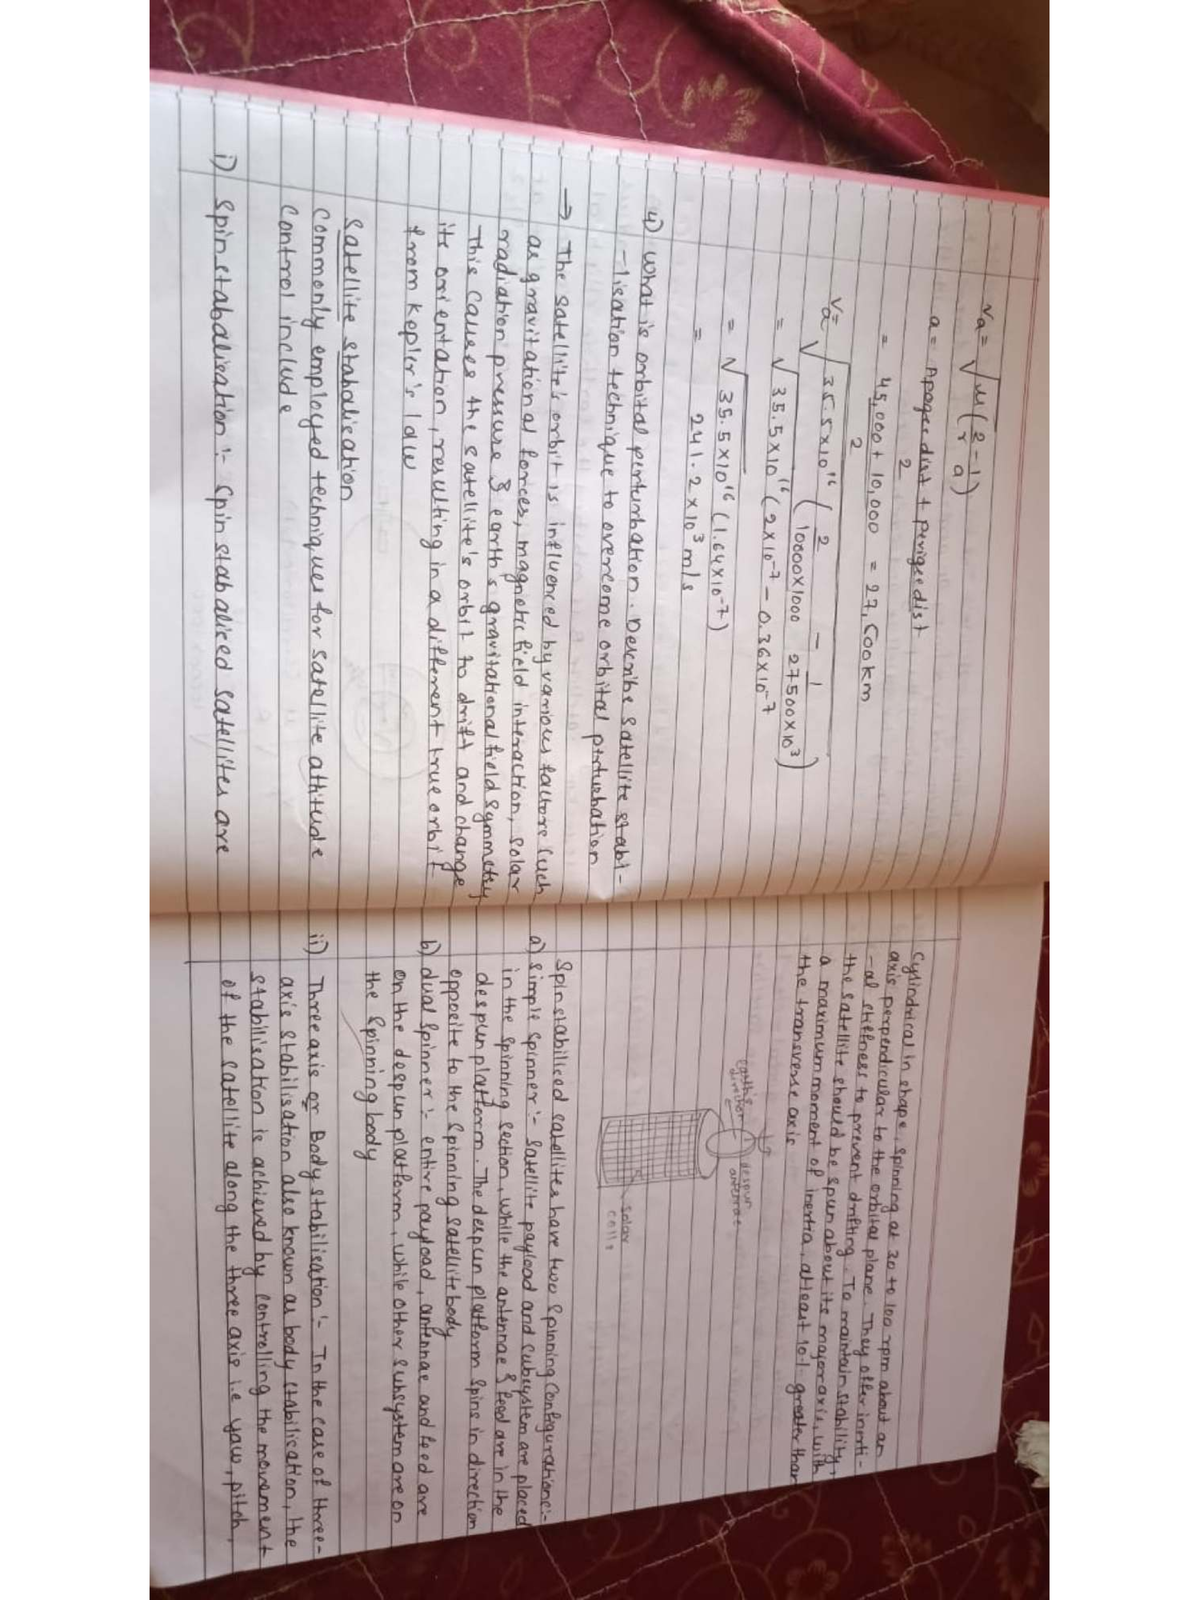 Va = √μ(2/r - 1/a)
a = Apogee dist + perigee dist / 2
= 45,000 + 10,000 / 2 = 27,500 km
Va = √35.5×10^16 (2/10000×1000 - 1/27500×10^3)
= √35.5×10^16 (2×10^-7 - 0.36×10^-7
= √35.5×10^16 (1.64×10^-7)
= 241.2×10^3 m/s
4) What is orbital perturbation. Describe satellite stabi-
-lisation technique to overcome orbital perturbation
→ The satellite's orbit is influenced by various factors such
as gravitational forces, magnetic field interaction, solar
radiation pressure & earth's gravitational field symmetry
This causes the satellite's orbit to drift and change
its orientation, resulting in a different true orbit
from kepler's law
Satellite stabalisation
Commonly employed techniques for satellite attitude
control include
i) Spin stabalisation :- Spin stabaliced satellites are
Cylindrical in shape, spinning at 30 to 100 rpm about an
axis perpendicular to the orbital plane. They offer inerti-
-al stiffness to prevent drifting. To maintain stability,
the satellite should be spun about its major axis, with
a maximum moment of inertia, atleast 10-1- greater than
the transverse axis
earth's
despun
antennae
solar
cells
Spin stabiliced satellites have two spinning configurations:-
a) Simple spinner :- Satellite payload and subsystem are placed
in the spinning section, while the antennae & feed are in the
despun platform. The despun platform spins in direction
opposite to the spinning satellite body
b) dual spinner :- entire payload, antennae and feed are
on the despun platform, while other subsystem are on
the spinning body
ii) Three axis or Body stabilisation :- In the case of three-
axis stabilisation also known as body stabilisation, the
stabilisation is achieved by controlling the movement
of the satellite along the three axis i.e yaw, pitch,